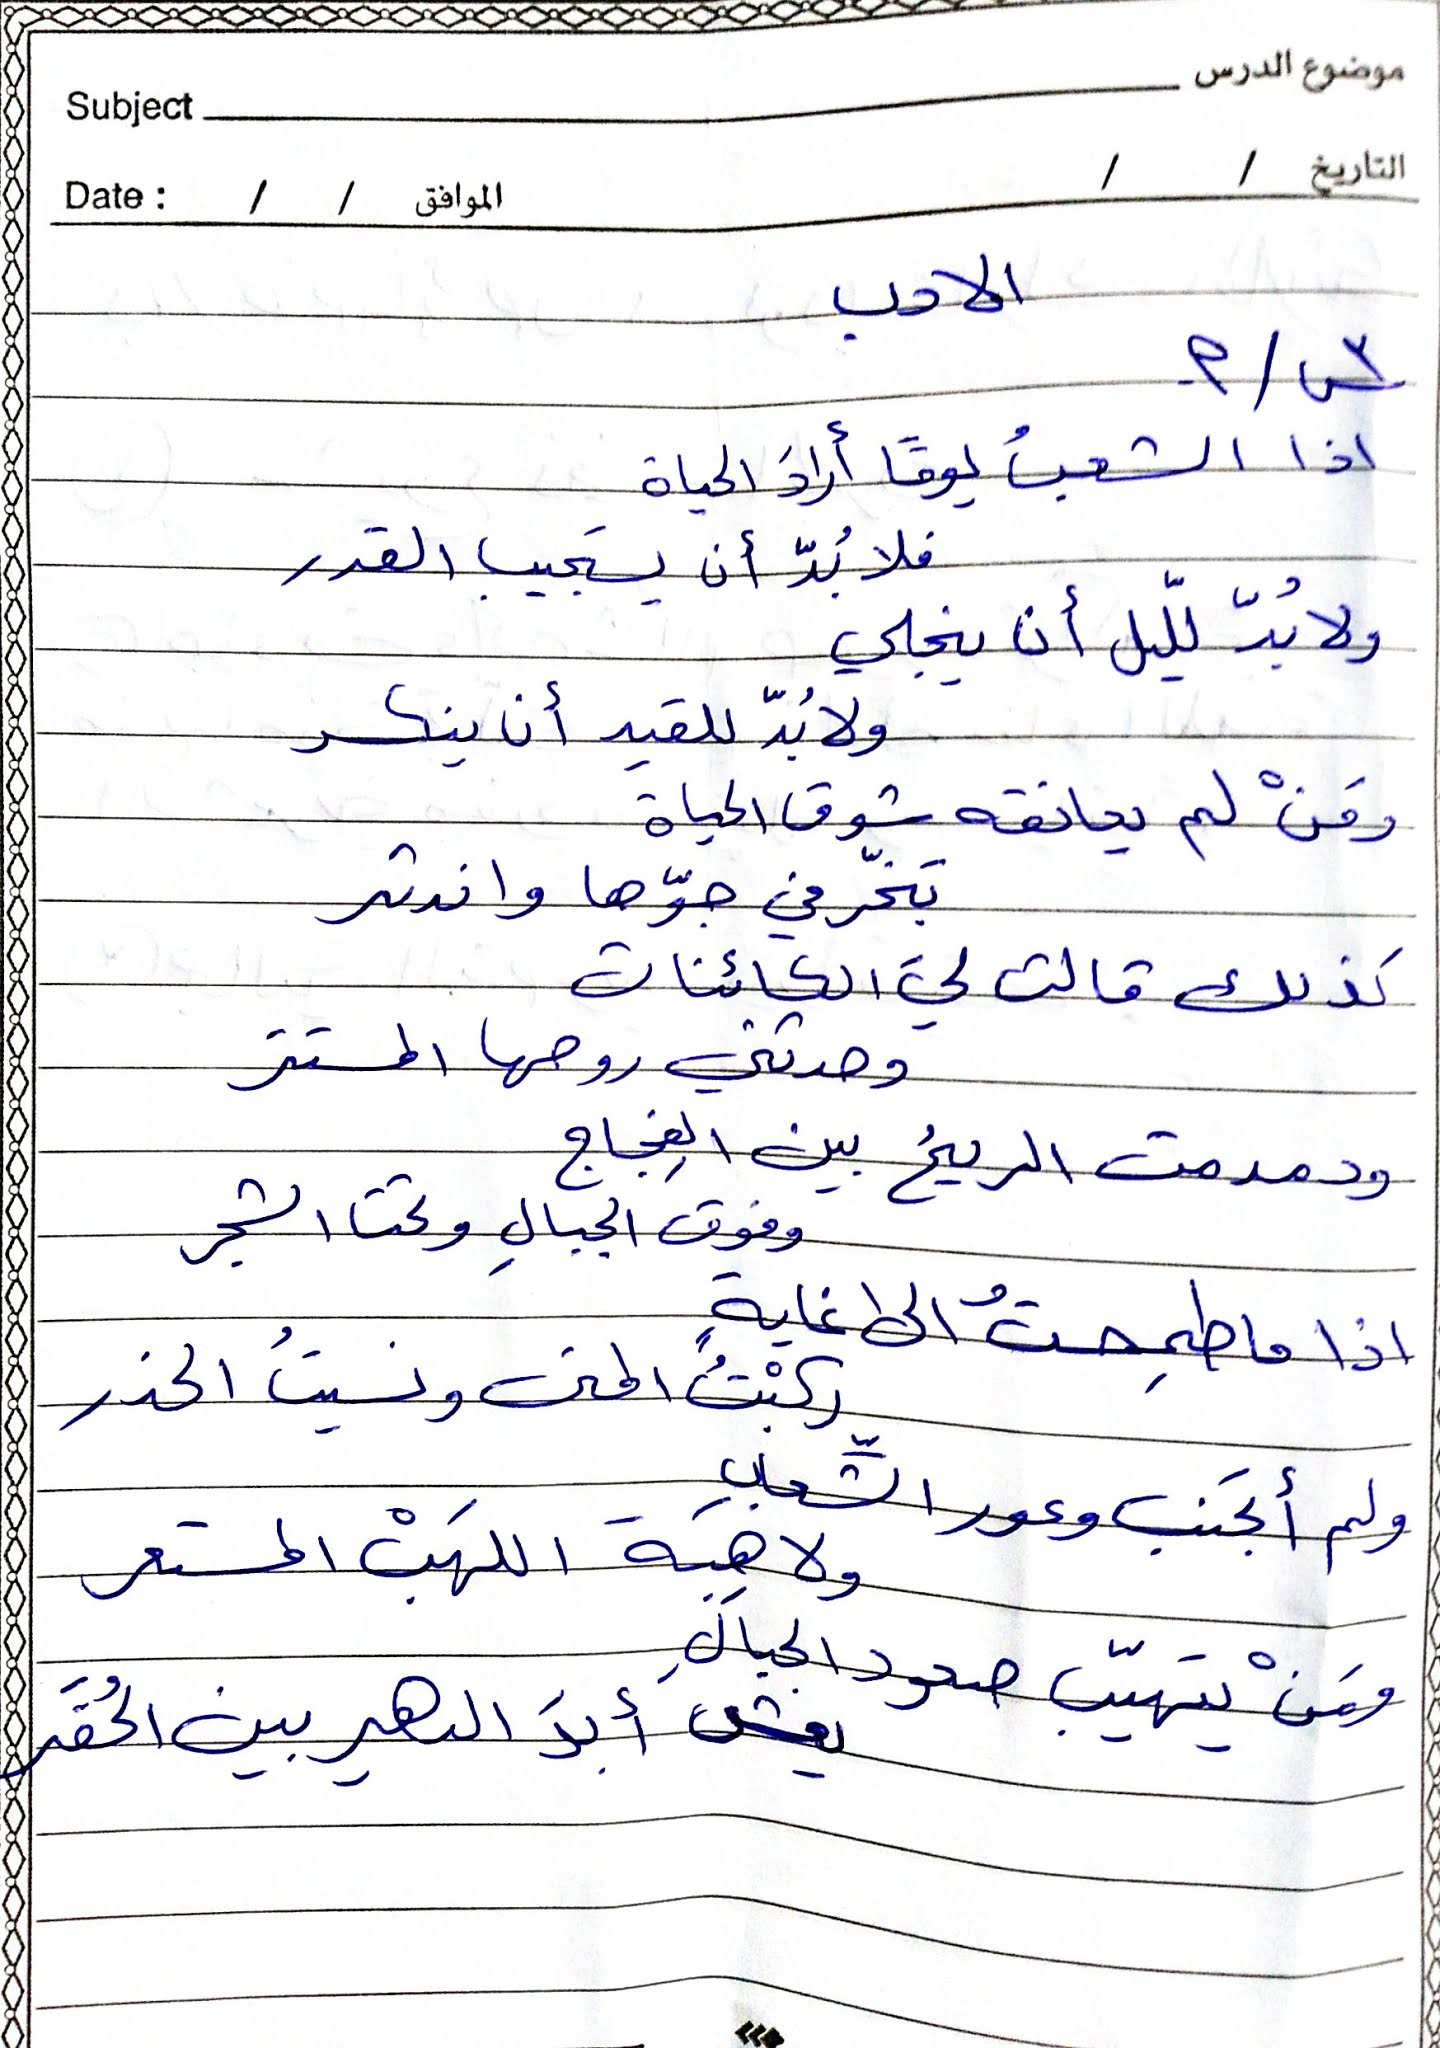 موضوع الدرس
Subject
التاريخ / / الموافق / / Date :
الادب
س٢/٩
اذا الشعبُ يومًا أرادَ الحياة
فلا بُدّ أن يستجيب القدر
ولا بُدّ لليّل أن ينجلي
ولا بُدّ للقيدِ أن ينكسر
ومَنْ لم يعانقه شوق الحياة
تَبخّر في جوّها واندثر
كذلك قالت ليَ الكائنات
وحدثني روحها المستتر
ودمدمت الريحُ بين الفِجاج
وفوق الجبالِ وتحت الشجر
اذا ما طمِحتُ الى غايةٍ
ركبْتُ المنى ونسيتُ الحذر
ولم أتجَنب وعور الشِّعابِ
ولا هِبَةَ اللهَبْ المستعر
ومَنْ يتهيّب صعود الجبالِ
يعش أبدَ الدهرِ بين الحُفَر